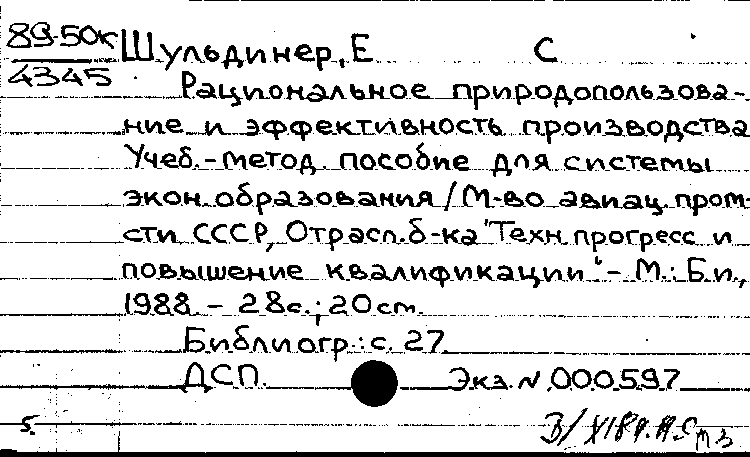 89-50к
4345
Шульдинер, Е С
Рациональное природопользова-
ние и эффективность производства
Учеб.-метод. пособие для системы
экон. образования / М-во авиац. пром-
сти СССР, Отрасл. б-ка "Техн. прогресс и
повышение квалификации" - М.: Б.и.,
1988. - 28 с.; 20 см.
Библиогр.: с. 27.
ДСП. Экз. N 000597
5.